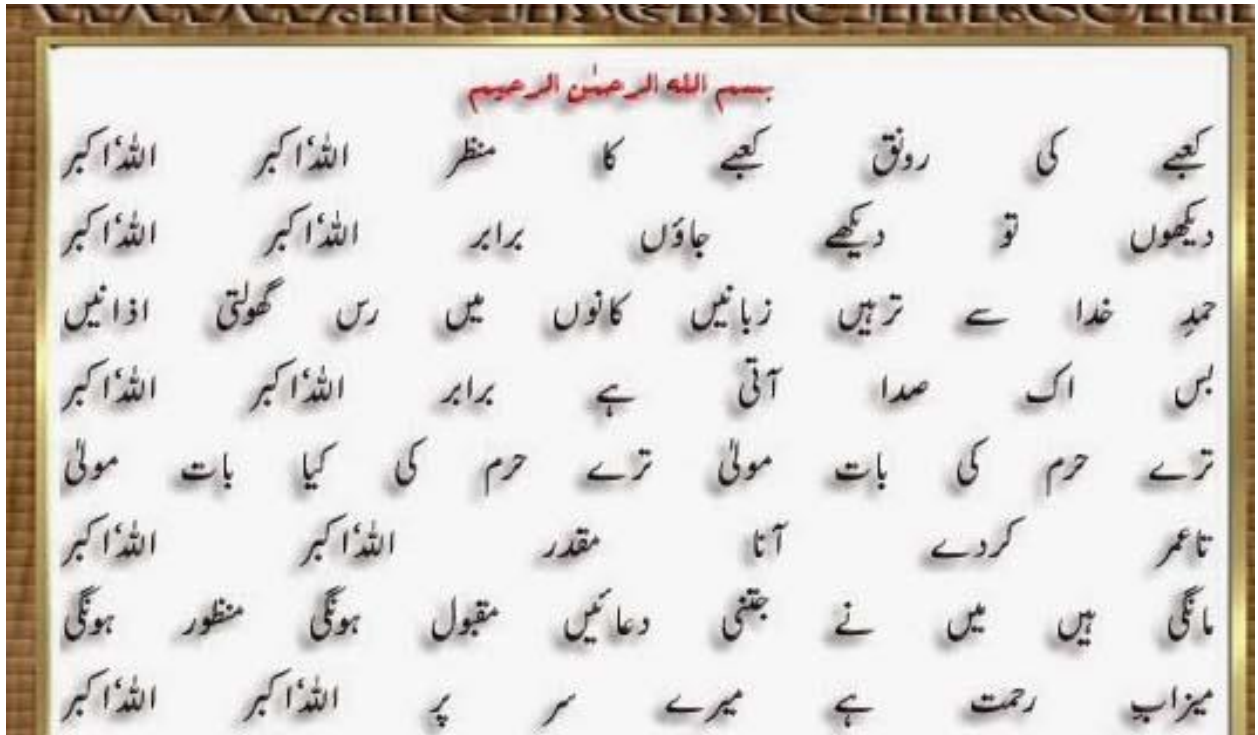 بسم الله الرحمٰن الرحیم
کعبے کی رونق کعبے کا منظر اللہُ اکبر اللہُ اکبر
دیکھوں تو دیکھے جاؤں برابر اللہُ اکبر اللہُ اکبر
حمدِ خدا سے تر ہیں زبانیں کانوں میں رس گھولتی اذانیں
بس اک صدا آتی ہے برابر اللہُ اکبر اللہُ اکبر
ترے حرم کی بات مولیٰ ترے حرم کی کیا بات مولیٰ
تا عمر کردے آنا مقدر اللہُ اکبر اللہُ اکبر
مانگی ہیں میں نے جتنی دعائیں مقبول ہونگی منظور ہونگی
میزابِ رحمت ہے میرے سر پر اللہُ اکبر اللہُ اکبر